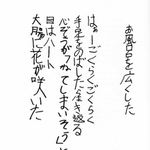 お風呂を広くした
はぁーごくらくごくらく
手足をのばした生き返る
心ぞうがはねてしまいそうと
目はハート
大胆に花が咲いた